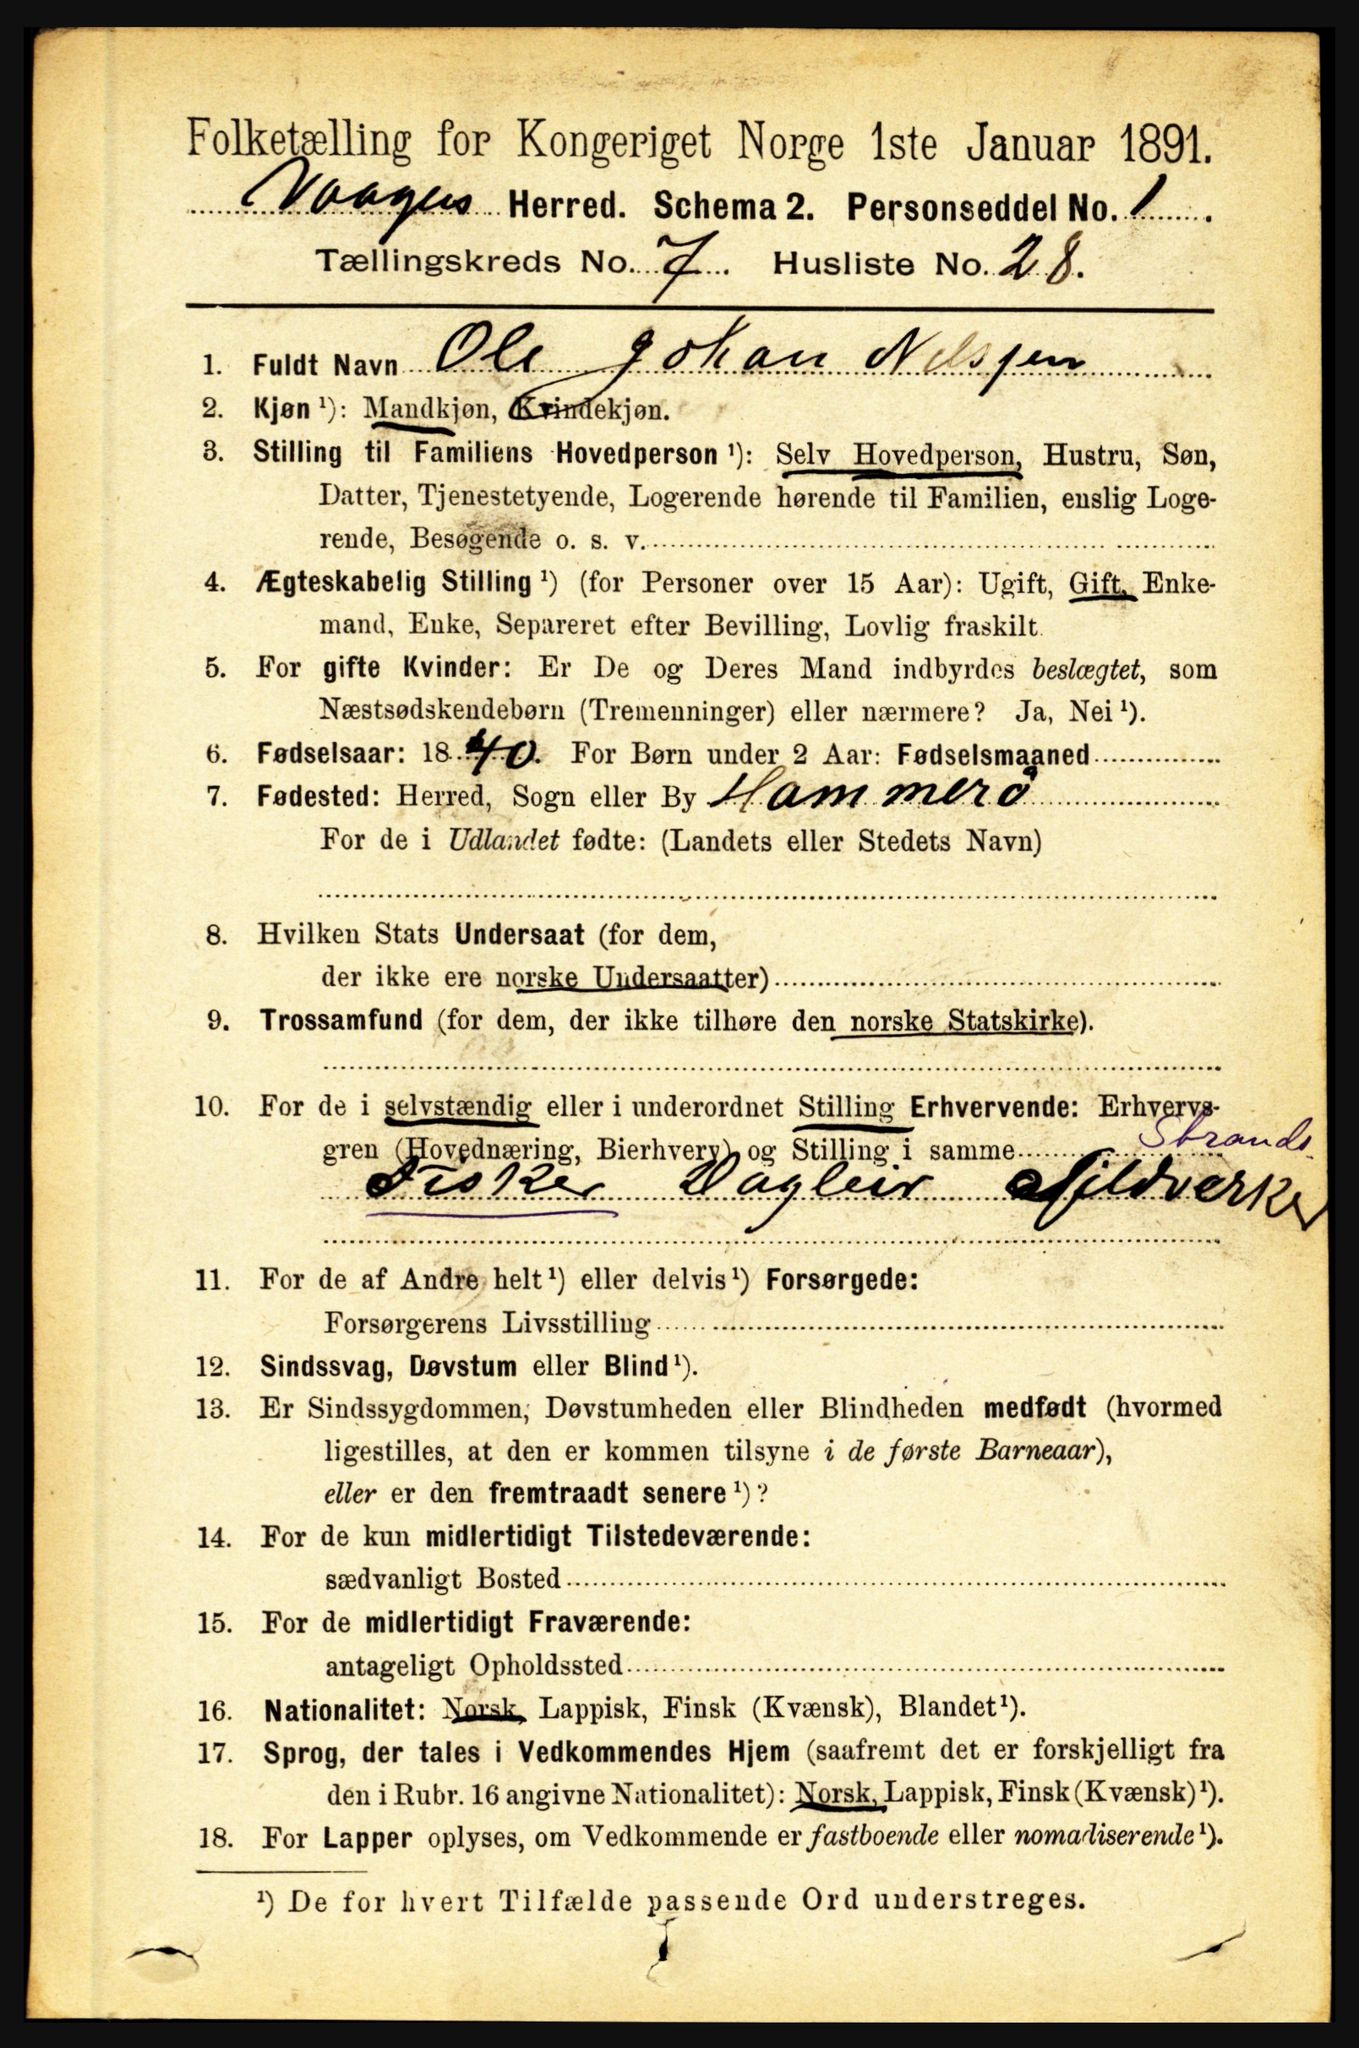 Folketælling for Kongeriget Norge 1ste Januar 1891.
Vaagens Herred. Schema 2. Personseddel No. 1.
Tællingskreds No. 7. Husliste No. 28.
1. Fuldt Navn Ole Johan Nilssen
2. Kjøn ¹): Mandkjøn, Kvindekjøn.
3. Stilling til Familiens Hovedperson ¹): Selv Hovedperson, Hustru, Søn,
Datter, Tjenestetyende, Logerende hørende til Familien, enslig Loge-
rende, Besøgende o. s. v.
4. Ægteskabelig Stilling ¹) (for Personer over 15 Aar): Ugift, Gift, Enke-
mand, Enke, Separeret efter Bevilling, Lovlig fraskilt.
5. For gifte Kvinder: Er De og Deres Mand indbyrdes beslægtet, som
Næstsødskendebørn (Tremenninger) eller nærmere? Ja, Nei ¹).
6. Fødselsaar: 1840. For Børn under 2 Aar: Fødselsmaaned
7. Fødested: Herred, Sogn eller By Hammerö
For de i Udlandet fødte: (Landets eller Stedets Navn)
8. Hvilken Stats Undersaat (for dem,
der ikke ere norske Undersaatter)
9. Trossamfund (for dem, der ikke tilhøre den norske Statskirke).
10. For de i selvstændig eller i underordnet Stilling Erhvervende: Erhvervs-
gren (Hovednæring, Bierhverv) og Stilling i samme Strands.
Fisker Dagleir
11. For de af Andre helt ¹) eller delvis ¹) Forsørgede:
Forsørgerens Livsstilling
12. Sindssvag, Døvstum eller Blind ¹).
13. Er Sindssygdommen, Døvstumheden eller Blindheden medfødt (hvormed
ligestilles, at den er kommen tilsyne i de første Barneaar),
eller er den fremtraadt senere ¹)?
14. For de kun midlertidigt Tilstedeværende:
sædvanligt Bosted
15. For de midlertidigt Fraværende:
antageligt Opholdssted
16. Nationalitet: Norsk, Lappisk, Finsk (Kvænsk), Blandet ¹).
17. Sprog, der tales i Vedkommendes Hjem (saafremt det er forskjelligt fra
den i Rubr. 16 angivne Nationalitet): Norsk, Lappisk, Finsk (Kvænsk) ¹).
18. For Lapper oplyses, om Vedkommende er fastboende eller nomadiserende ¹).
¹) De for hvert Tilfælde passende Ord understreges.